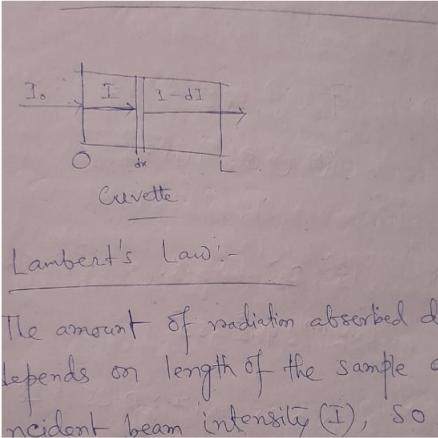 I₀ I I-dI
O dx L
Cuvette
Lambert's Law:-
The amount of radiation absorbed
depends on length of the sample
incident beam intensity (I), so